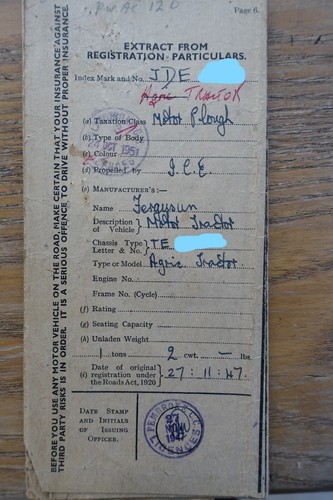 Page 6.
EXTRACT FROM
REGISTRATION PARTICULARS.
Index Mark and No. JDE
Agric TRACTOR
(a) Taxation Class Motor Plough
(b) Type of Body
(c) Colour
(d) Propelled by I.C.E.
(e) MANUFACTURER'S:—
Name Fergusun
Description of Vehicle } Motor Tractor
Chassis Type Letter & No. } T.E.
Type or Model Agric Tractor.
Engine No.
Frame No. (Cycle)
(f) Rating
(g) Seating Capacity
(h) Unladen Weight
1 tons 2 cwt. — lbs
(i) Date of original registration under the Roads Act, 1920 } 27.11.47.
DATE STAMP
AND INITIALS
OF ISSUING
OFFICER.
PEMBROKE C.C.
27 NOV 1947
LICENCES
OCT 1951
BEFORE YOU USE ANY MOTOR VEHICLE ON THE ROAD, MAKE CERTAIN THAT YOUR INSURANCE AGAINST
THIRD PARTY RISKS IS IN ORDER. IT IS A SERIOUS OFFENCE TO DRIVE WITHOUT PROPER INSURANCE.